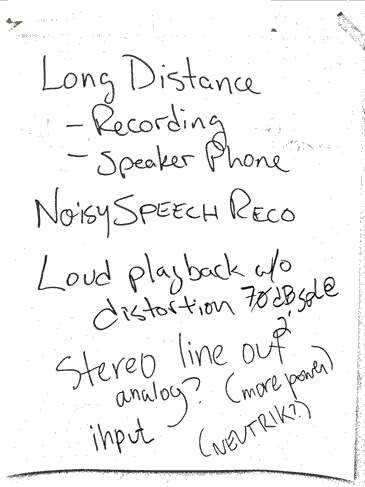 Long Distance
- Recording
- Speaker Phone
Noisy SPEECH RECO
Loud playback w/o
distortion 70 dB spl @
2'
Stereo line out
analog? (more power)
input (NEUTRIK?)